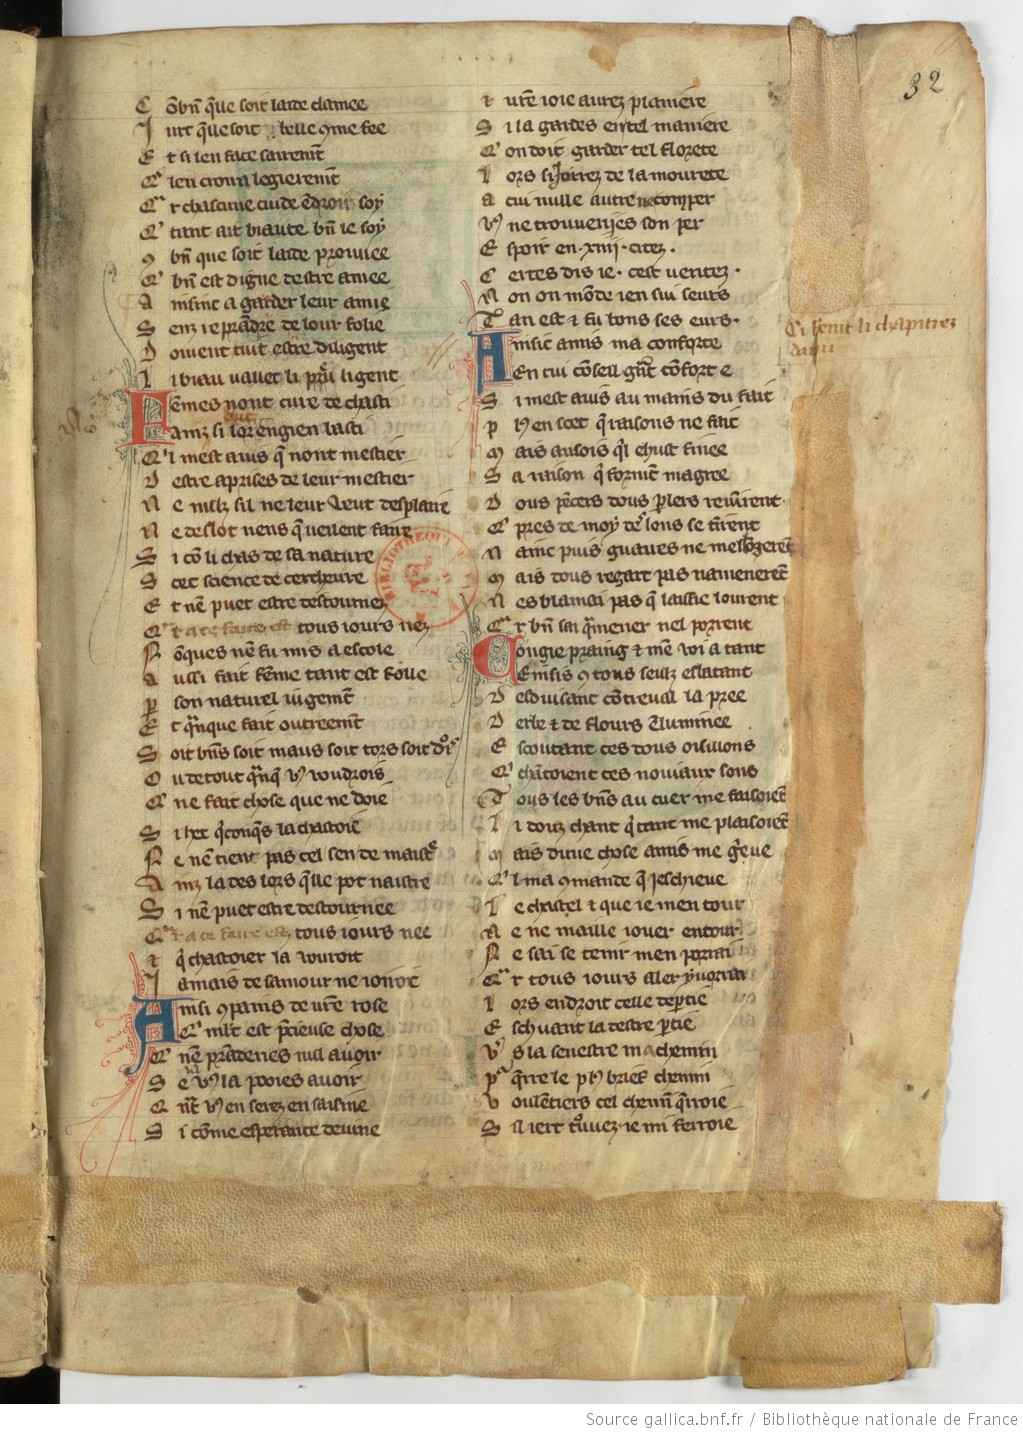 32
C ōbñ q̄ue soit laide clamee
J urt q̄ue soit belle ꝯme fee
E t si len face sairemt̄
Q̄ len croira legieremt̄
C̄ r chascune cuide ēdroit soy
Q̄ tant ait biaute bñ le soy
ꝯ bñ que soit laide prouuee
Q̄ bñ est digne destre amee
A insinc a garder leur amie
S enz repr̄adre de lour folie
D oiuent tuit estre diligent
L i biau uallet li preu li gent
Femes nont cure de chasti
Ainz si lor engien basti
Q̄ i mest auis q̄ nont mestier
D estre aprises de leur mestier
N e nulz sil ne leur veut desplaire
N e deslot riens q̄ ueulent faire
S i cō li chas de sa nature
S cet science de cercheure
E t nē puet estre destournez
Q̄ r a ce faire est tous iours nez
N ōques nē fu mis a escole
A ussi fait fēme tant est folle
p son naturel iugemt̄
E t q̄nque fait outreemt̄
S oit bñs soit maus soit tors soit drois
O u de tout q̄nq̄ vꝰ voudrois
Q̄ ne fait chose que ne doie
S i het q̄conq̄s la chastoie
N e nē tient pas cel sen de maistre
A inz la des lors q̄lle pot naistre
S i nē puet estre destournee
Q̄ r a ce faire est tous iours nee
t q̄ chastoier la vouroit
J amais de samour ne ioiroit
Ainsi ꝯpains de vr̄e rose
Q̄ mlt̄ est p̄cieuse chose
Q̄ nē pr̄aderies nul auoir
S e vꝰ la poies auoir
Q̄ nt̄ vꝰ en serez en saisine
S i cōme esperance deuine
t vr̄e ioie aurez planiere
S i la gardes en tel maniere
Q̄ on doit garder tel florete
L ors si ioirez de la mourete
A cui nulle autre ne comper
Vꝰ ne trouueriies son per
E spoir en ·xiiij· citez ·
C ertes dis ie · cest veritez ·
N on on mōde ien sui seurs
T an est ⁊ fu bons ses eurs·
Ainsic amis ma conforte
En cui cōseil gñt cōfort e
S i mest auis au mains du fait
p lꝰ en scet q̄ raisons ne fait
M ais ancois q̄l ehust finee
S a raison q̄ formt̄ magree
D ous pēcers dous p̄lers reuirent
Q̄ pres de moy dēs lons se tīrent
N ainc puis guaires ne mesloignerēt
M ais dous regart pas namenerēt
N es blamai pas q̄ laissie lourent
Q̄ r bñ sai q̄mener nel porrent
Congie praing ⁊ mē voi a tant
Emsis ꝯ tous seulz eslatant
D esduisant cōtreual la pree
D erbe ⁊ de flours enluminee
E scoutant ces dous oisillons
Q̄ chātoient ces nouiaux sons
T ous les bñs au cuer me faisoiēt
L i douz chant q̄ tant me plaisoiēt
M ais dune chose amis me g̈reue
Q̄ l ma ꝯmande q̄ ieschieue
L e chastel ⁊ que ie men tour
N e ne maille iouer entour
N e sai se tenir men porrai
Q̄ r tous iours aler y vorrai
L ors endroit celle departie
E schiuant la destre p̄tie
Vꝰ s la senestre machemin
Pᵃ q̄rre le plꝰ brief chemin
V oulētiers cel chemī q̄rroie
S il iert trouuez ie mi ferroie
Ci fenit li chapitrez
damis
BIBLIOTHEQUE
Source gallica.bnf.fr / Bibliothèque nationale de France